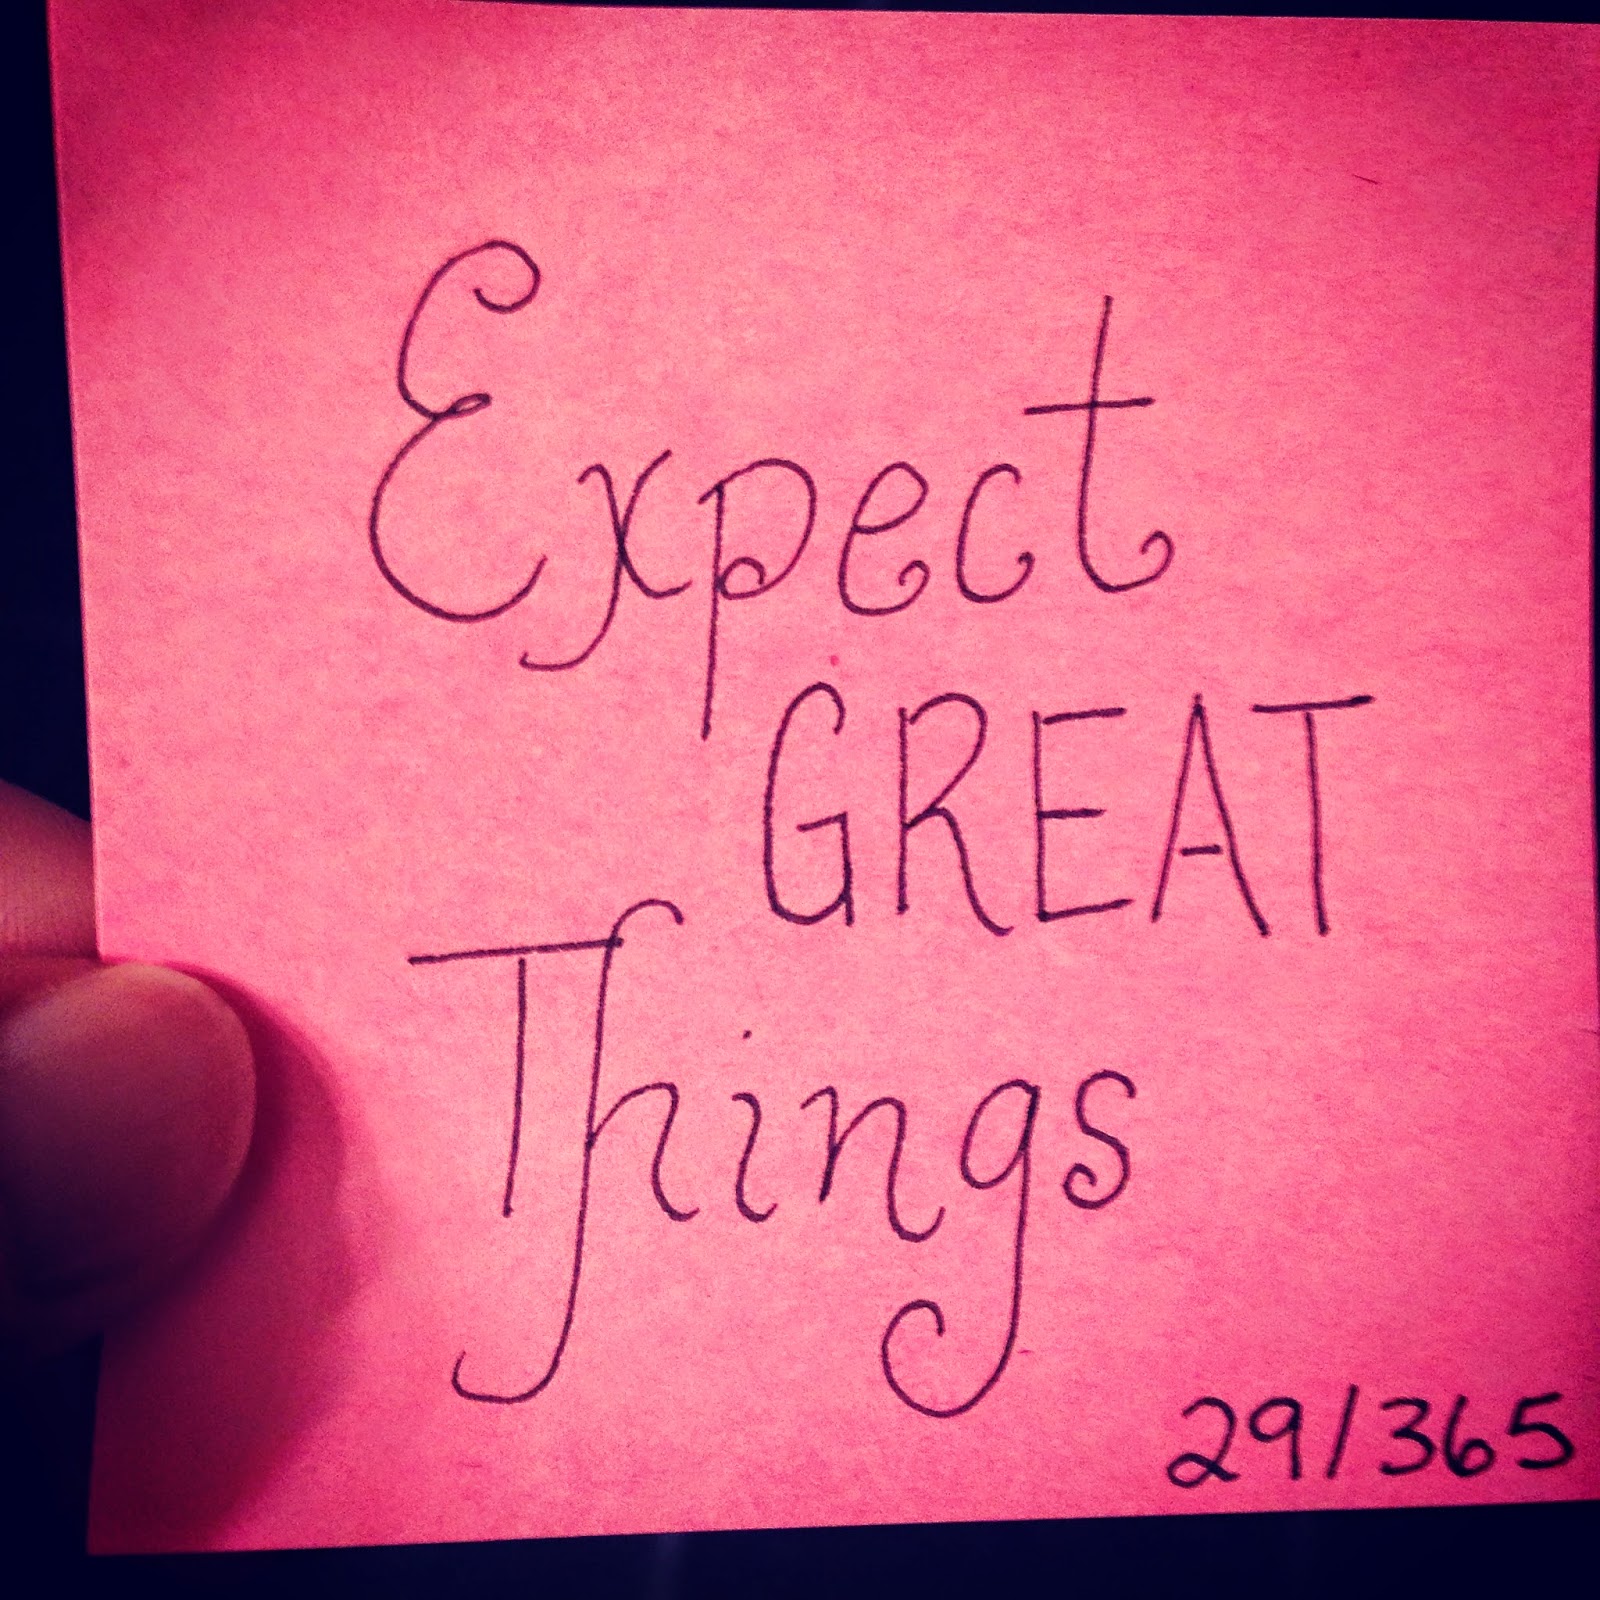 Expect
GREAT
Things
29/365